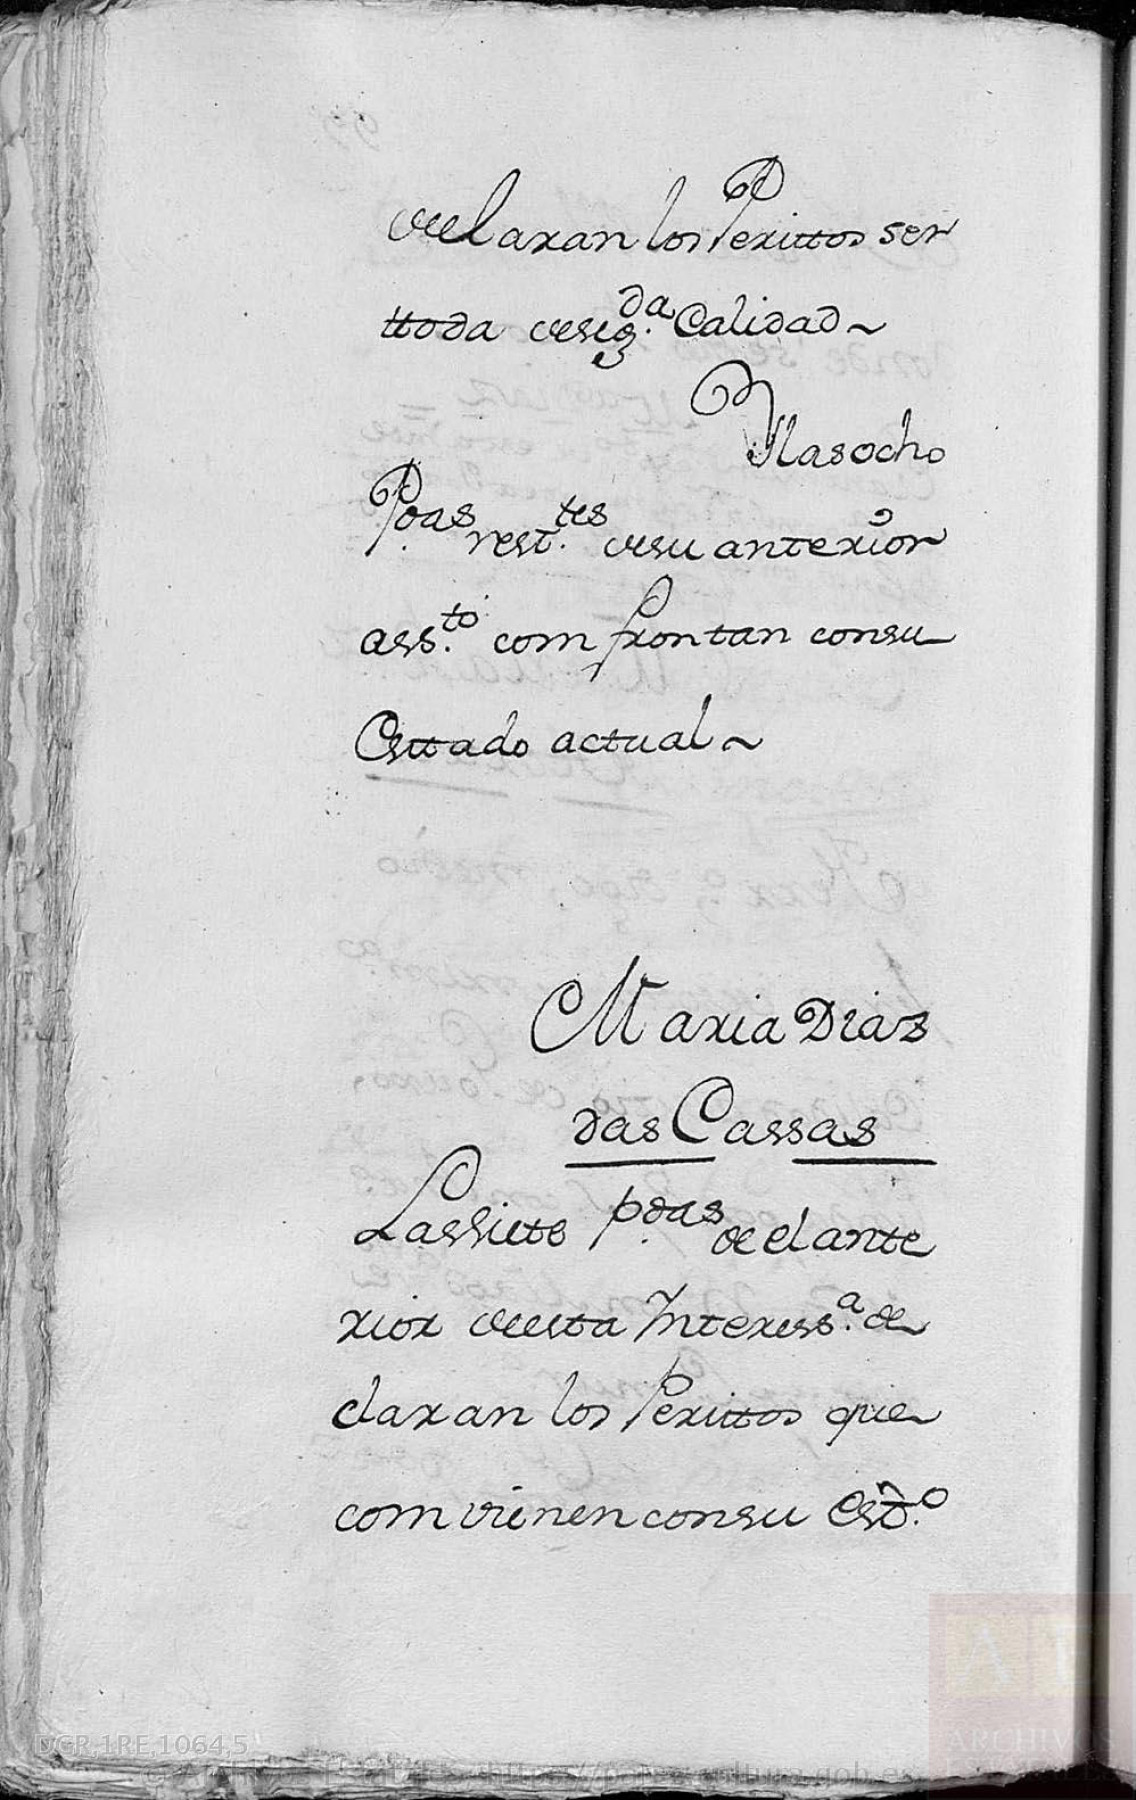 declaran los Perittos ser
ttoda deseg.da Calidad~
Ylas ocho
P.das rest.tes desu anterior
ass.to comfrontan consu
Esttado actual~
Maria Diaz
das Cassas
Lassiete p.das de el ante
rior deesta Interess.a de
claran los Perittos que
comvienen consu Estd.o
DGR,1RE,1064,5